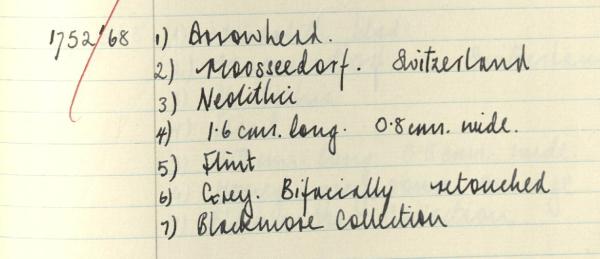 1752/68 1) Arrowhead.
2) Moosseedorf. Switzerland
3) Neolithic
4) 1.6 cms. long. 0.8 cms. wide.
5) Flint
6) Grey. Bifacially retouched
7) Blackmore Collection